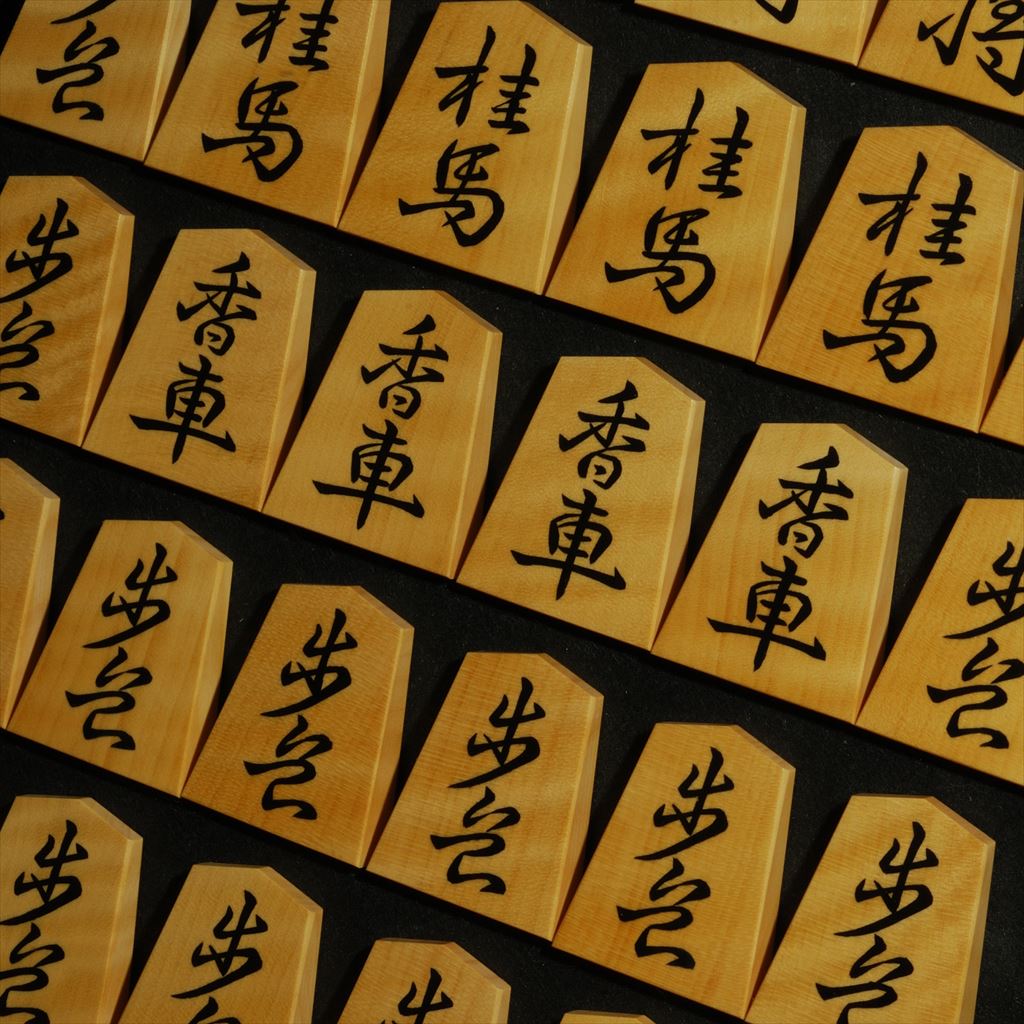 将
兵
桂馬
桂馬
桂馬
桂馬
歩兵
香車
香車
香車
香車
歩兵
歩兵
歩兵
歩兵
歩兵
歩兵
歩兵
歩
歩